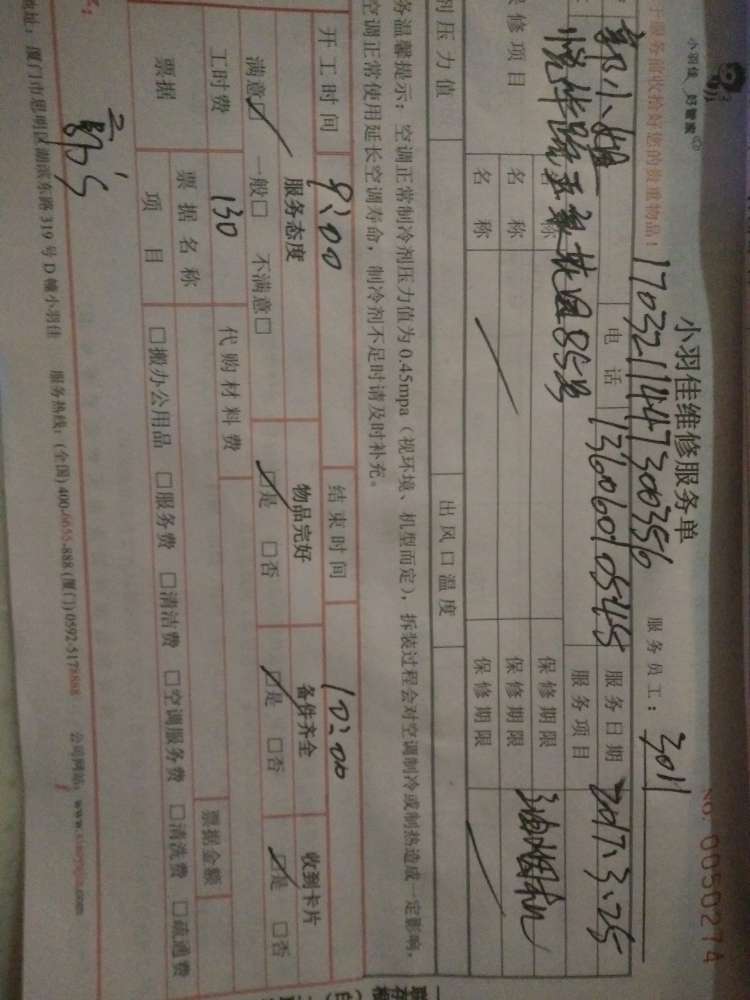 小羽佳 好管家
小羽佳维修服务单
NO. 0050274
于服务前收检好您的贵重物品！
1703211447300356
服务员工： 3011
郭小姐 电话 13606010545 服务日期 2017.3.25
悦华路 85号 服务项目 油烟机
保修项目 名称 保修期限
名称 保修期限
名称 保修期限
剂压力值 出风口温度
务温馨提示：空调正常制冷剂压力值为0.45mpa（视环境、机型而定），拆装过程会对空调制冷或制热造成一定影响，
空调正常使用延长空调寿命，制冷剂不足时请及时补充。
开工时间 9:00 结束时间 10:00
服务态度 物品完好 备件齐全 收到卡片
满意☑ 一般□ 不满意□ ☑是 □否 ☑是 □否 ☑是 □否
工时费 130 代购材料费
票据 票据名称 票据金额
项目 □搬办公用品 □服务费 □清洁费 □空调服务费 □清洗费 □疏通费
地址：厦门市思明区湖滨东路319号D幢小羽佳 服务热线：(全国)400-6655-888 (厦门)0592-5178888 公司网站：